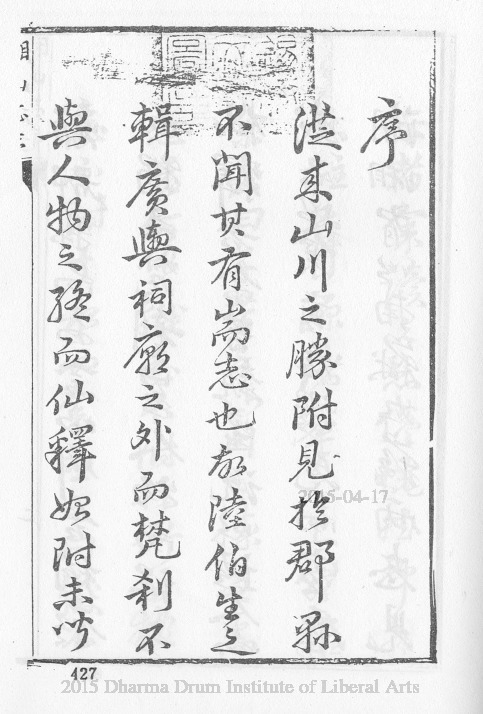 序
從來山川之勝附見扵郡縣
不聞其有耑志也故陸伯生之
輯廣輿祠廟之外而梵剎不
與人物之終而仙釋始附未
2015-04-17
427
2015 Dharma Drum Institute of Liberal Arts